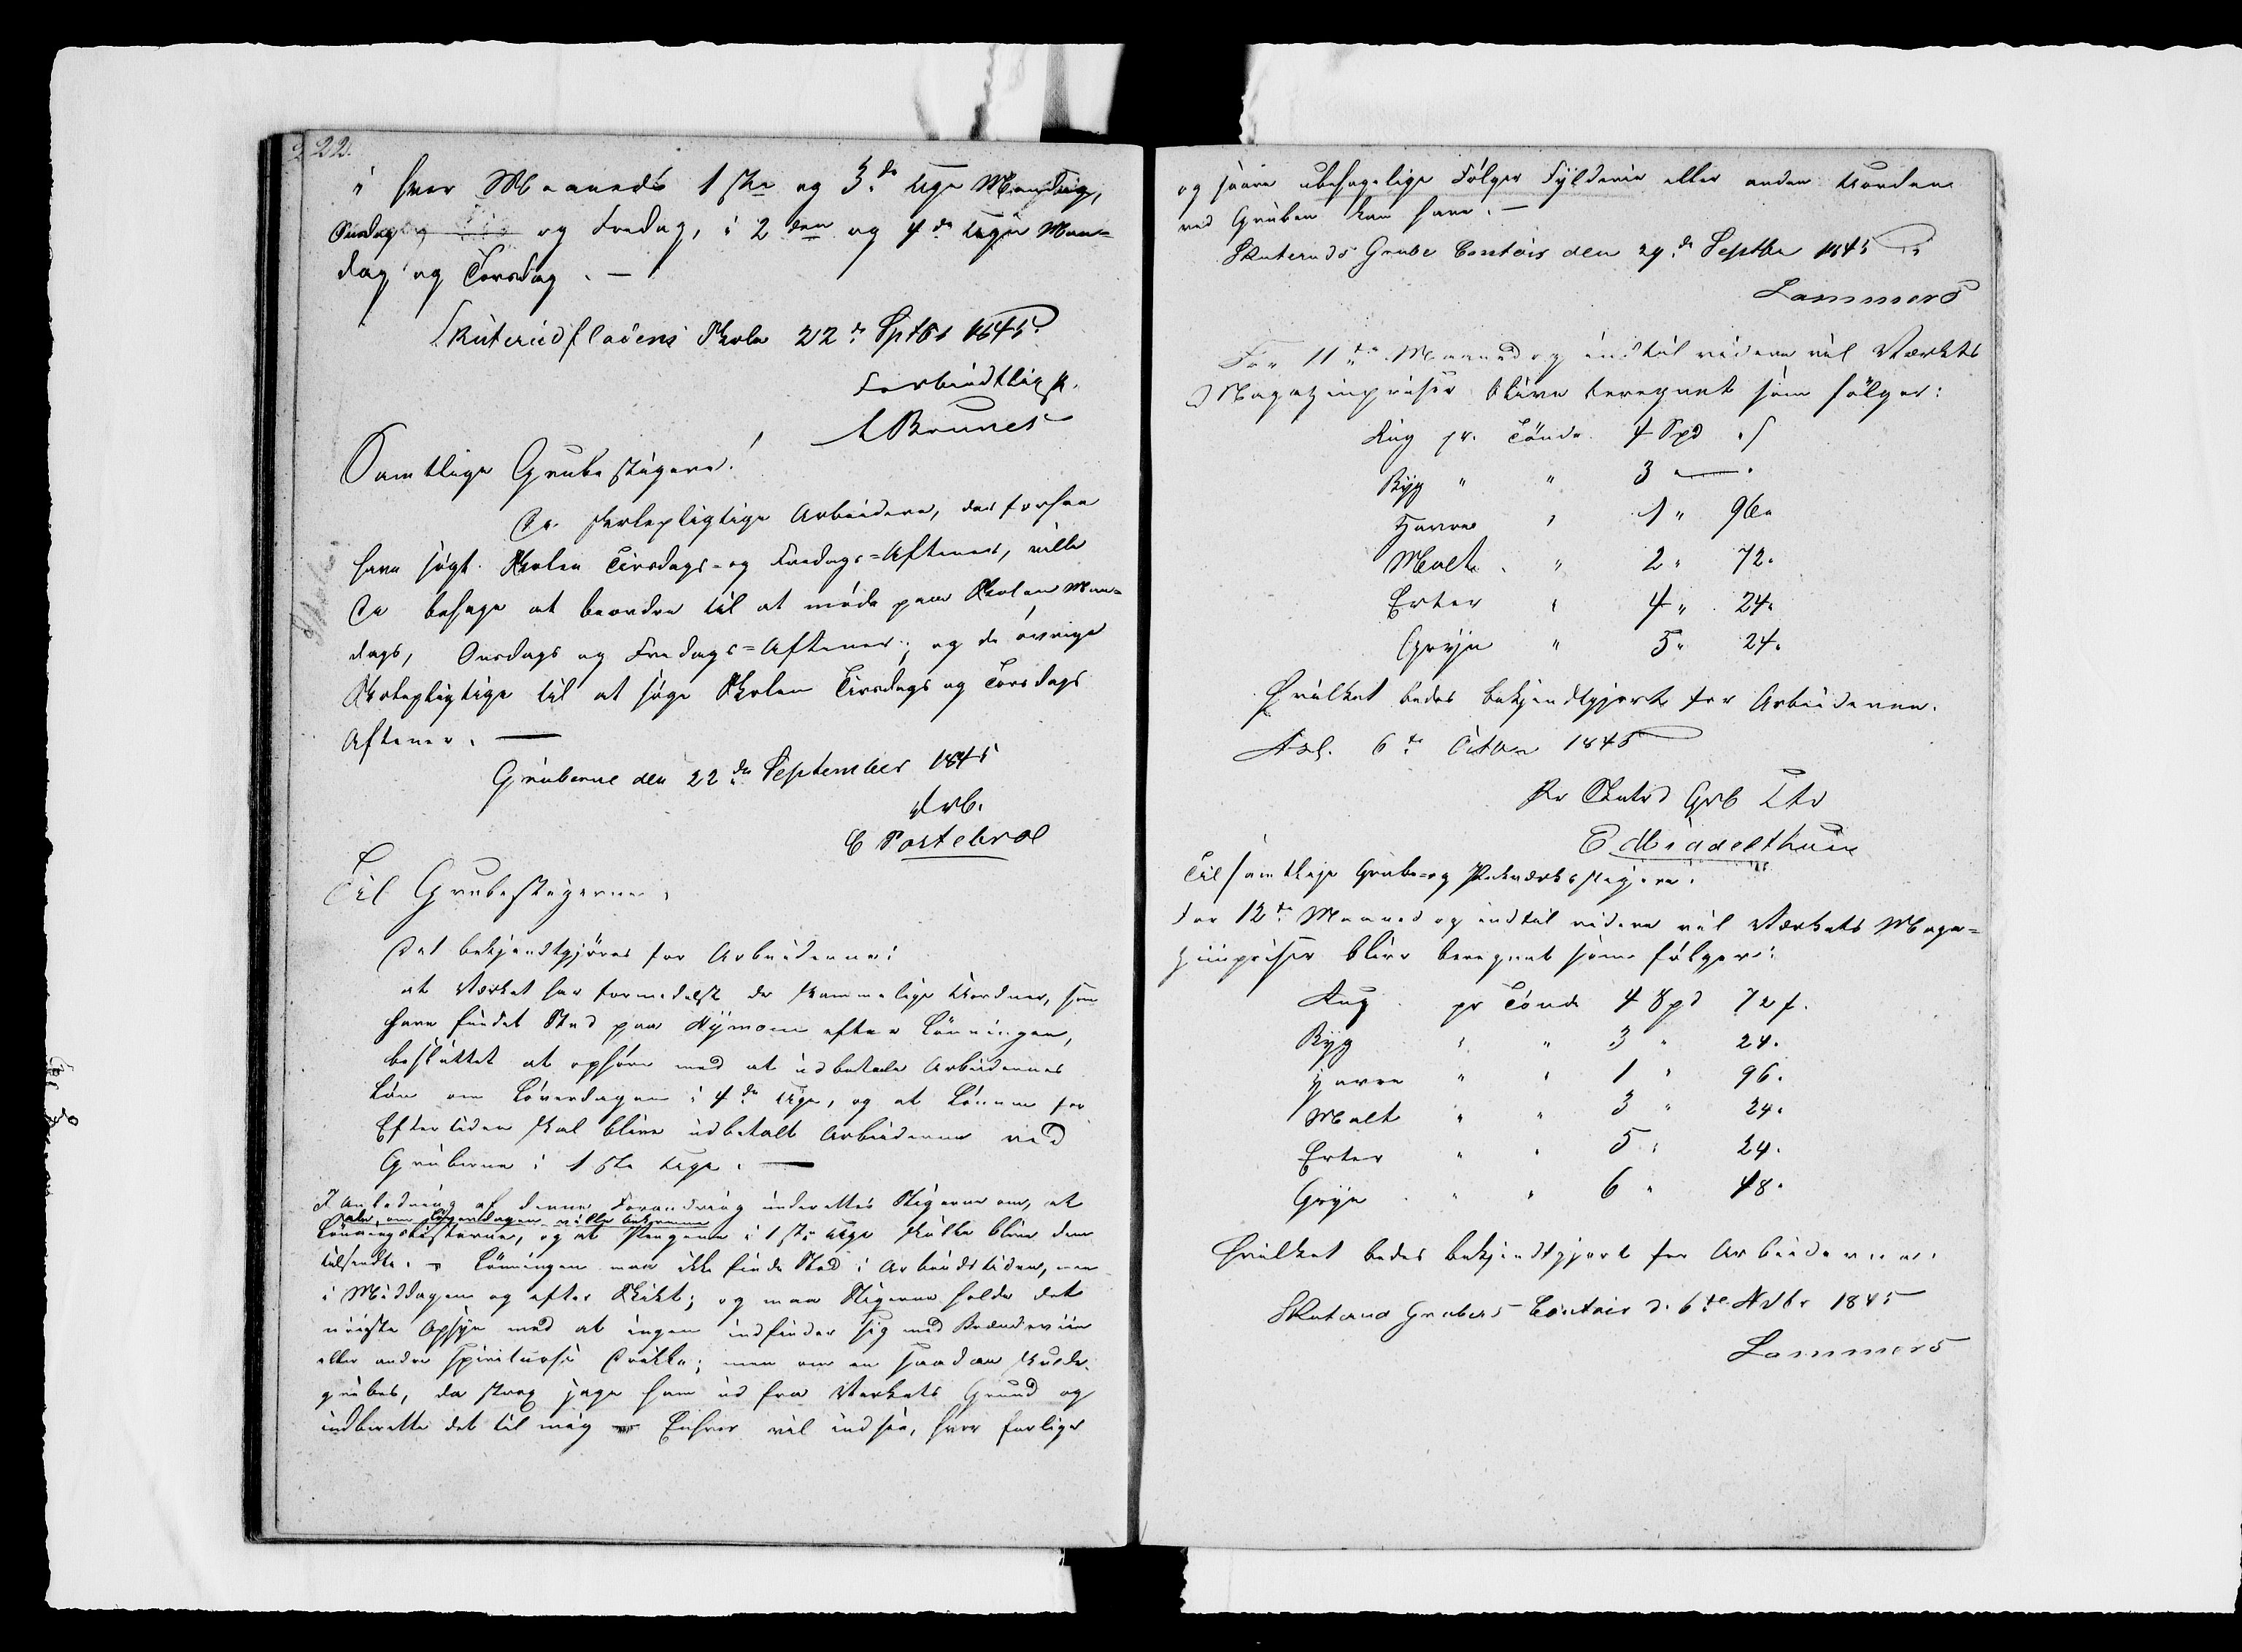 22.
i hver Maaneds 1ste og 3de Uge Mandag,
Onsdag og Fredag, i 2den og 4de Uge Man=
dag og Torsdag. —
Skuterudfladens Skole 22de Septbr 1845.
Forbindtligst.
Brunes
Samtlige Grubestigere!
De skolepligtige Arbeidere, der forhen
have søgt Skolen Tirsdags- og Fredags-Aftener, ville
De behage at beordre til at møde paa Skolen Man=
dags, Onsdags og Fredags=Aftener; og de øvrige
Skolepligtige til at søge Skolen Tirsdags og Torsdags
Aftener. —
Skole.
Gruberne den 22de September 1845
Erb.
C Rostebroe
Til Grubestigerne,
Det bekjendtgjøres for Arbeiderne:
at Værket har formedelst de skammelige Uordner, som
have fundet Sted paa Nymoen efter Lønningen,
besluttet at ophøre med at udbetale Arbeidernes
Løn om Løverdagen i 4de Uge, og at Lønnen for
Eftertiden skal blive udbetalt Arbeiderne ved
Gruberne i 1ste Uge. —
I Anledning af denne Forandring underrettes Stigerne om, at
de, om Løverdagen ville bekomme
Lønningslisterne, og at Pengene i 1ste Uge skulle blive dem
tilsendte. — Lønningen maa ikke finde Sted i Arbeidstiden, men
i Middagen og efter Skikt; og maa Stigerne holde det
nøieste Opsyn med at ingen indfinder sig med Brændeviin
eller andre spirituøse Drikke; men om en saadan skulde
gribes, da strax jage ham ud fra Værkets Grund og
indberette det til mig — Enhver vil indsee, hvor farlige
og saare ubehagelige Følger Fylderie eller anden Uorden
ved Gruben kan have. —
Skuteruds Grube Contoir den 29de Septbr 1845
Lammers
For 11te Maaned og indtil videre vil Værkets
Magazinpriser blive beregnet som følger:
Rug pr. Tønde 4 Spd " s
Byg " " 3 — "
Havre " 1 " 96 "
Malt " " 2 " 72 "
Erter " 4 " 24 "
Gryn " 5 " 24 "
Hvilket bedes bekjendtgjort for Arbeiderne.
6te Octbr 1845
Pr Skutrd Grb
C Middelthuin
Til samtlige Grube- og Pukværksstigere.
For 12te Maaned og indtil videre vil Værkets Maga=
ziinpriser blive beregnet som følger:
Rug pr Tønde 4 Spd 72 s.
Byg " " 3 " 24.
Havre " " 1 " 96.
Malt " " 3 " 24.
Erter " " 5 " 24.
Gryn " " 6 " 48.
Hvilket bedes bekjendtgjort for Arbeiderne.
Skuterud Grubers Contoir d. 6te Nvbr 1845
Lammers